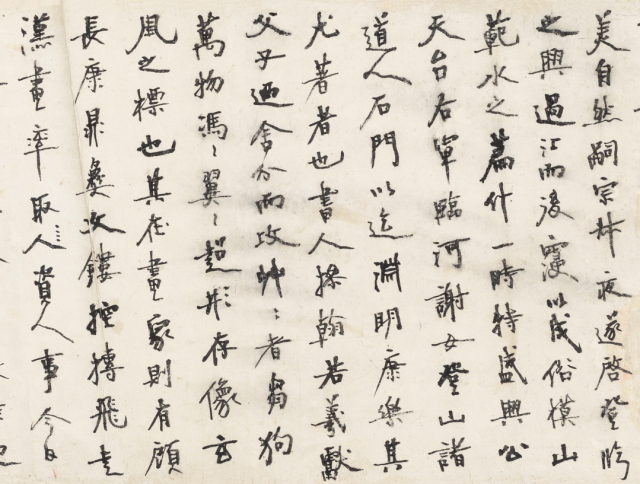 美自然嗣宗叔夜遂啓登臨
之興過江而後寖以成俗模山
範水之篇什一時特盛興公
天台右軍臨河謝女登山諸
道人石門以迄淵明康樂其
尤著者也書人操翰若羲獻
父子迺舍分而攻艸艸者芻狗
萬物馮馮翼翼超形存像玄
風之標也其在畫家則有顧
長康鼎彝文鏤摶飛走
漢畫率取人資人事今日